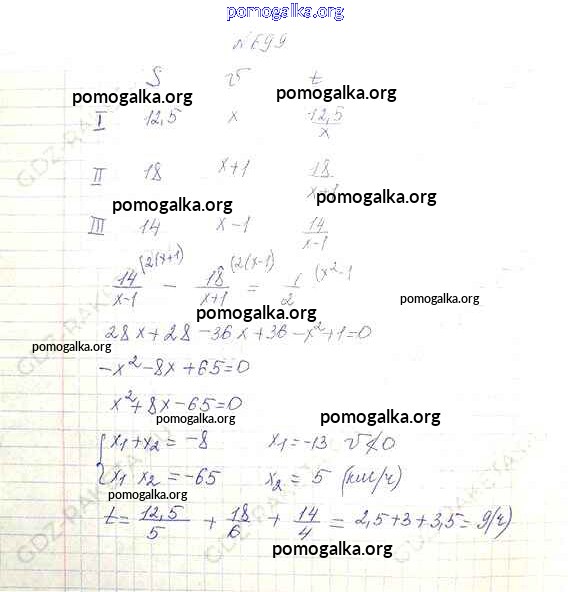 pomogalka.org
№699
S v t
pomogalka.org pomogalka.org
I 12,5 x 12,5/x
II 18 x+1 18/x+1
pomogalka.org pomogalka.org
III 14 x-1 14/x-1
14/x-1 (2(x+1) - 18/x+1 (2(x-1) = 1/2 (x²-1
pomogalka.org pomogalka.org
28x+28-36x+36-x²+1=0
pomogalka.org
-x²-8x+65=0
x²+8x-65=0
pomogalka.org pomogalka.org
{x₁+x₂=-8 x₁=-13 v≮0
x₁ x₂=-65 x₂=5 (км/ч)
pomogalka.org
t=12,5/5 + 18/6 + 14/4 = 2,5+3+3,5=9(ч)
pomogalka.org